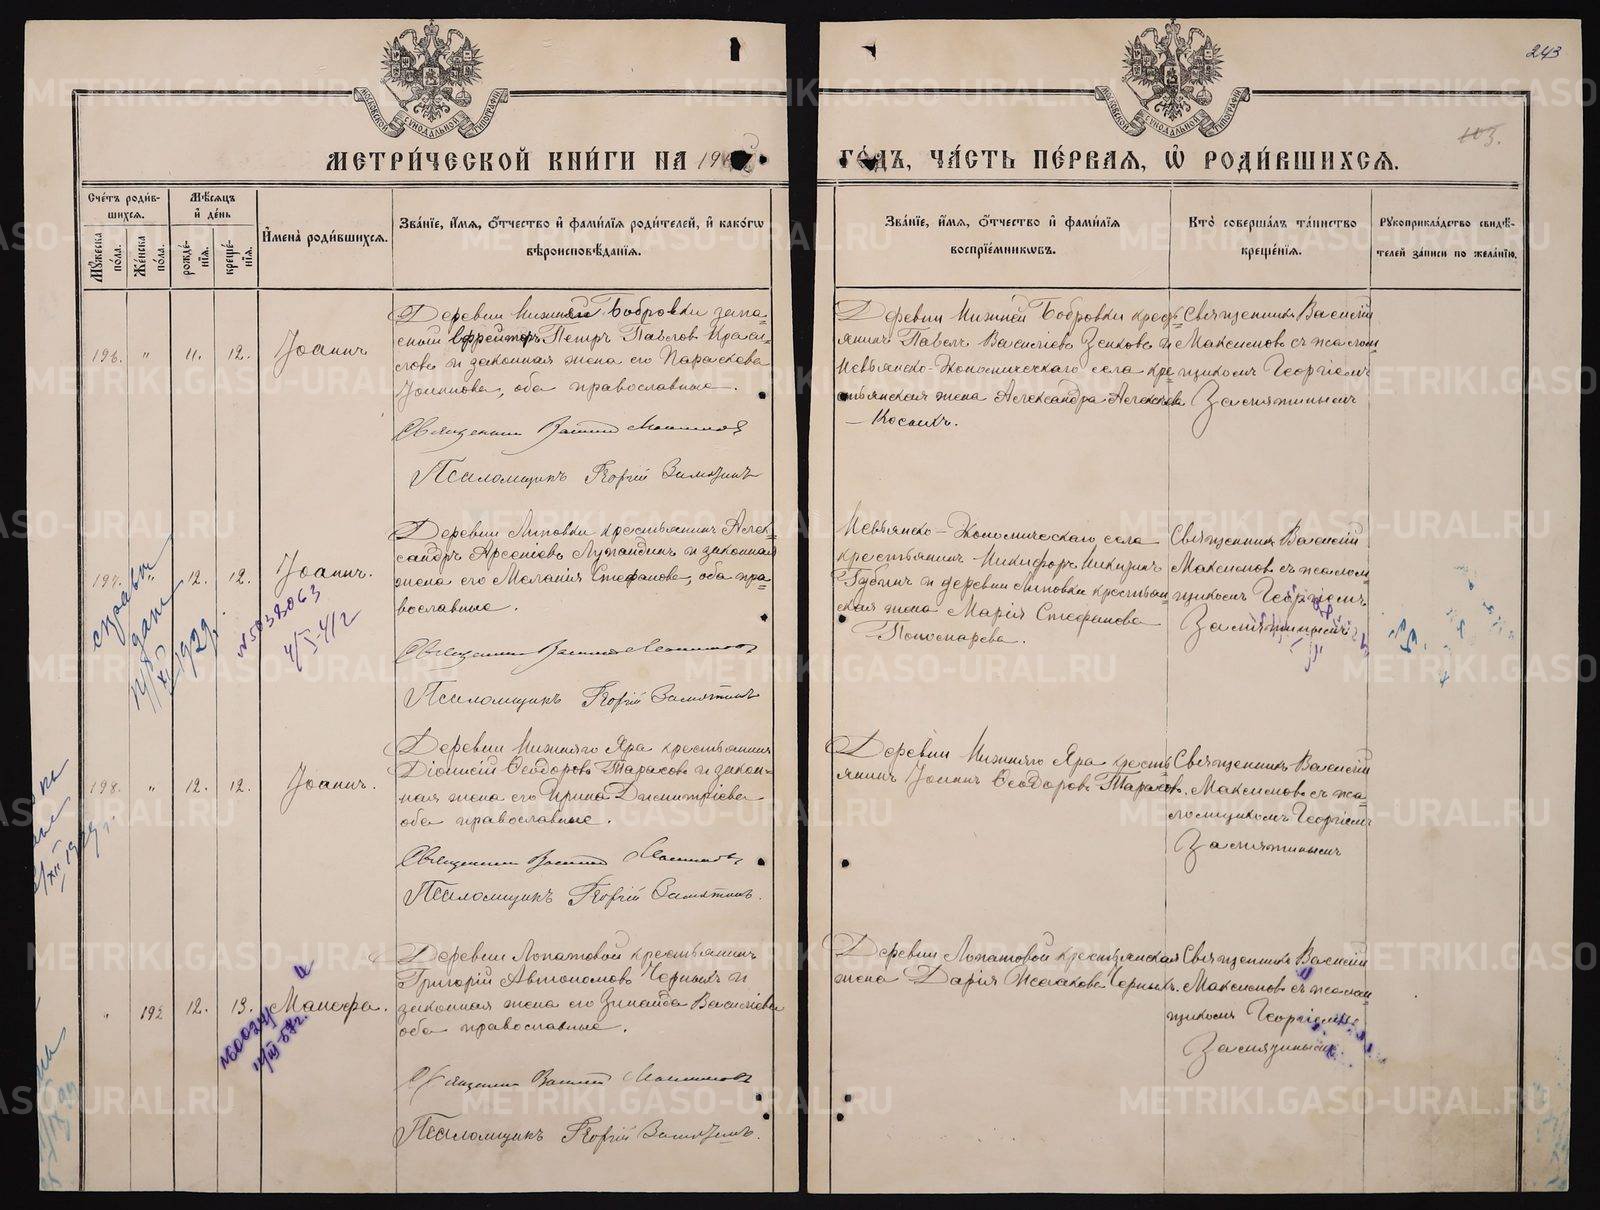 243
МОСКОВСКОЙ СѴНОДАЛЬНОЙ ТИПОГРАФІИ
МОСКОВСКОЙ СѴНОДАЛЬНОЙ ТИПОГРАФІИ
115.
МЕТРИ́ЧЕСКОЙ КНИ́ГИ НА 19
ГО́ДЪ, ЧА́СТЬ ПЕ́РВАѦ, Ѡ҆ РОДИ́ВШИХСѦ.
Сче́тъ роди́в-
шихсѧ.
Мꙋ́жеска по́ла.
Же́нска по́ла.
Мѣ́сѧцъ
и҆ де́нь
рожде́-
нїѧ.
креще́-
нїѧ.
И҆мена̀ роди́вшихсѧ.
Зва́нїе, и҆́мѧ, ѻ҆́тчество и҆ фами́лїѧ роди́телей, и҆ како́гѡ
вѣроисповѣ́данїѧ.
Зва́нїе, и҆́мѧ, ѻ҆́тчество и҆ фами́лїѧ
воспрїе́мникѡвъ.
Кто̀ соверша́лъ та́инство
креще́нїѧ.
Рꙋкоприкла́дство свидѣ́-
телей за́писи по жела́нїю.
196. " 11. 12. Іоаннъ
Деревни Нижней Бобровки запа-
сный ефрейторъ Петръ Павловъ
и законная жена его Параскева
Іоаннова, оба православные.
Священникъ Василій Максимовъ
Псаломщикъ Георгій Замятинъ
Деревни Нижней Бобровки кресть-
янинъ Павелъ Василіевъ Зенковъ и
Невьянско-Экономическаго села кре-
стьянская жена Александра Алексѣева
Косыхъ.
Священникъ Василій
Максимовъ съ псалом-
щикомъ Георгіемъ
Замятинымъ
197. " 12. 12. Іоаннъ.
Деревни Липовки крестьянинъ Алек-
сандръ Арсеніевъ и законная
жена его Меланія Стефанова, оба пра-
вославные.
Священникъ Василій Максимовъ
Псаломщикъ Георгій Замятинъ
Невьянско-Экономическаго села
крестьянинъ Никифоръ Никитинъ
Губинъ и деревни Липовки крестьян-
ская жена Марія Стефанова
Пономарева.
Священникъ Василій
Максимовъ съ псалом-
щикомъ Георгіемъ
Замятинымъ
справка
дана
1929г.
№5038063
4/X-41г
198. " 12. 12. Іоаннъ.
Деревни Нижняго Яра крестьянинъ
Діонисій Ѳеодоровъ Тарасовъ и закон-
ная жена его Ирина Димитріева
оба православные.
Священникъ Василій Максимовъ
Псаломщикъ Георгій Замятинъ.
Деревни Нижняго Яра кресть-
янинъ Іоаннъ Ѳеодоровъ Тарасовъ.
Священникъ Василій
Максимовъ съ пса-
ломщикомъ Георгіемъ
Замятинымъ
" 192 12. 13. Манефа.
Деревни Лопатовой крестьянинъ
Григорій Автономовъ Черныхъ и
законная жена его Зинаида Василіева
оба православные.
Священникъ Василій Максимовъ
Псаломщикъ Георгій Замятинъ.
Деревни Лопатовой крестьянская
жена Дарія Исаакова Черныхъ.
Священникъ Василій
Максимовъ съ псалом-
щикомъ Георгіемъ
Замятинымъ
METRIKI.GASO-URAL.RU